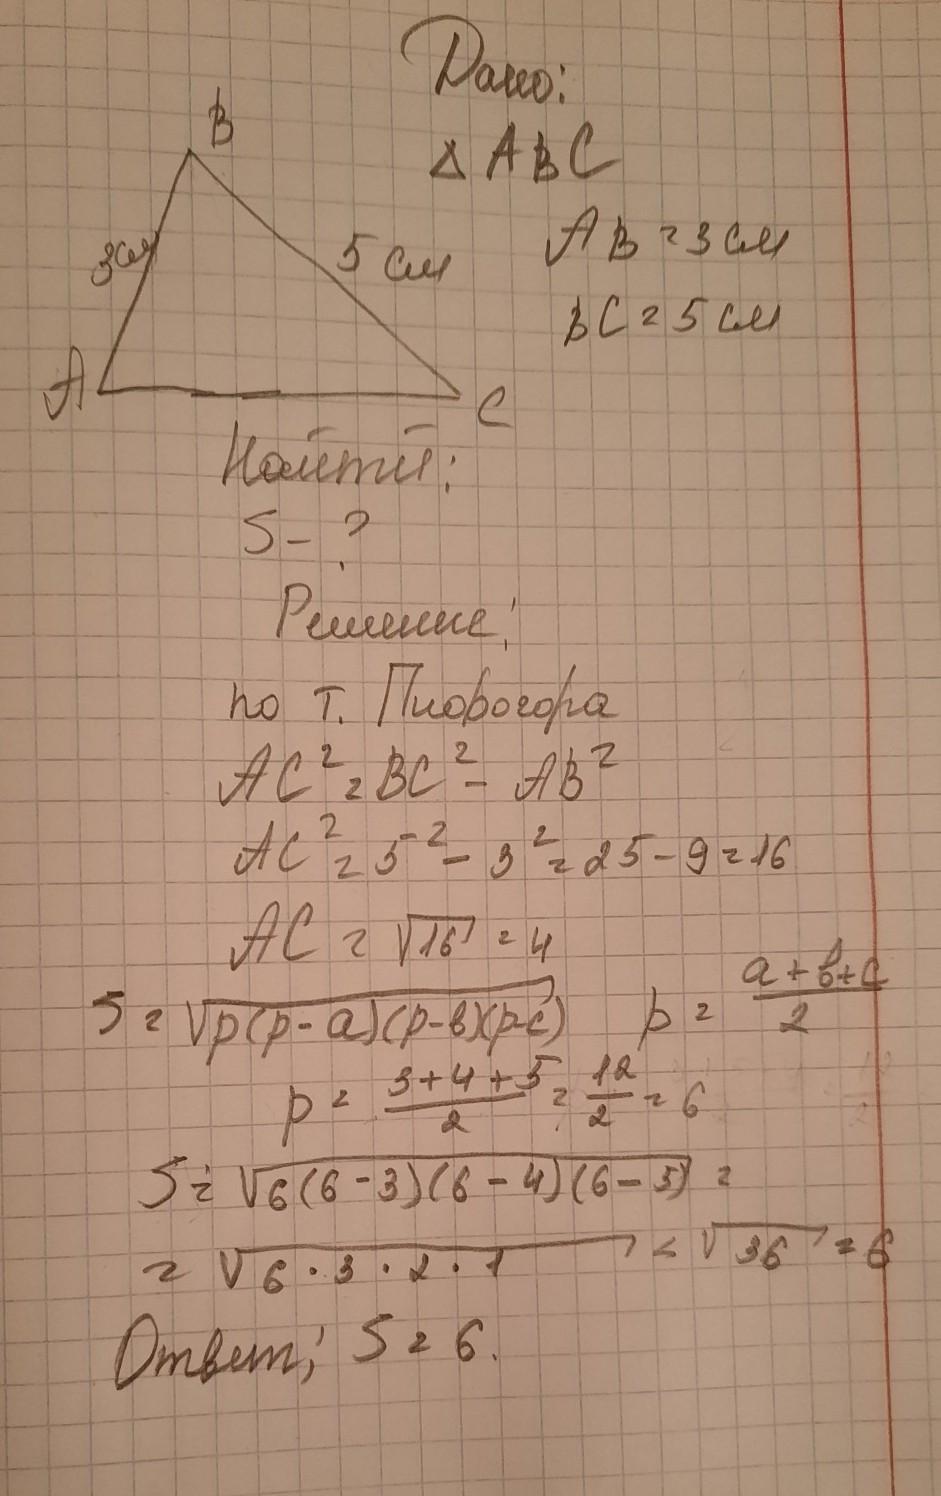 Дано:
B
Δ ABC
3см
5 см
AB = 3 см
BC = 5 см
A
C
Найти:
S - ?
Решение:
по т. Пифогора
AC² = BC² - AB²
AC² = 5² - 3² = 25 - 9 = 16
AC = √16 = 4
S = √p(p-a)(p-в)(p-c) p = (a+в+c)/2
p = (3+4+5)/2 = 12/2 = 6
S = √6(6-3)(6-4)(6-5) =
= √6·3·2·1 = √36 = 6
Ответ: S = 6.